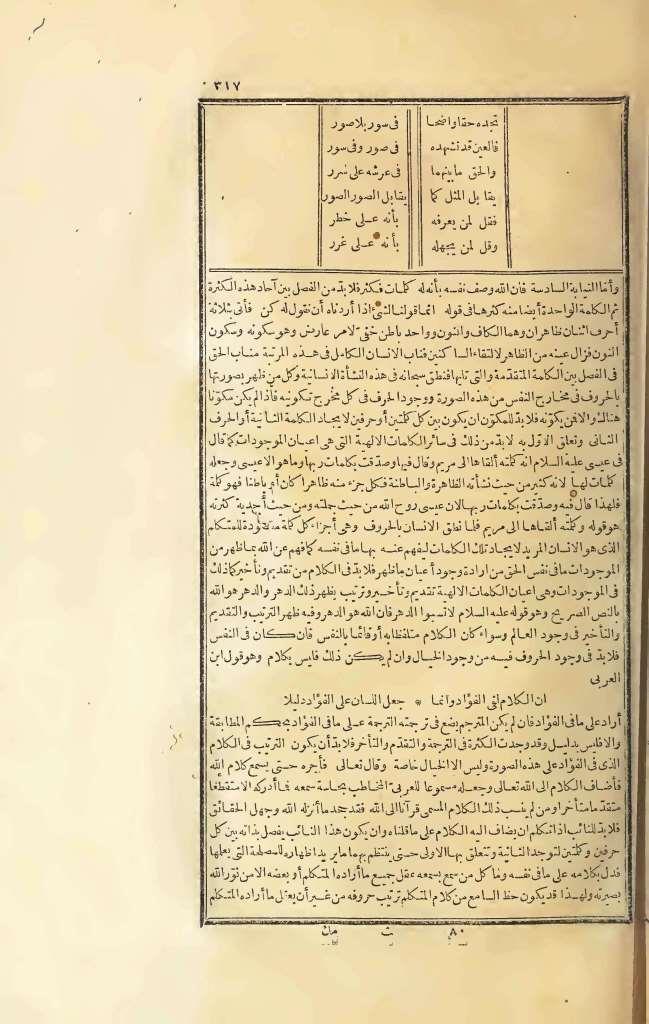 ٣١٧
تجده حقا واضحا في سور بلا صور
فالعين قد تشهده في صور وفي سور
والحق ما بينهما في عرشه على سرر
يقابل المثل كما يقابل الصور الصور
فقل لمن يعرفه بأنه على خطر
وقل لمن يجهله بأنه على غرر
وأما النيابة السادسة فان الله وصف نفسه بأن له كلمات فكثر فلا بد من الفصل بين آحاد هذه الكثرة
ثم الكلمة الواحدة أيضا منه كثرها في قوله انما قولنا لشئ اذا أردناه أن نقول له كن فأتى بثلاثة
أحرف اثنان ظاهران وهما الكاف والنون وواحد باطن خفي لامر عارض وهو سكونه وسكون
النون فزال عينه من الظاهر لالتقاء الساكنين فناب الانسان الكامل في هذه المرتبة مناب الحق
في الفصل بين الكلمة المتقدمة والتي تليها فنطق سبحانه في هذه النشأة الانسانية وكل من ظهر بصورتها
بالحروف في مخارج النفس من هذه الصورة ووجود الحرف في كل مخرج تكوينه فاذا لم يكن مكونا
هنالك والا فمن يكونه فلا بد للمكون ان يكون بين كل كلمتين أو حرفين لايجاد الكلمة الثانية أو الحرف
الثاني وتعلق الاول به لا بد من ذلك في سائر الكلمات الالهية التي هي اعيان الموجودات كما قال
في عيسى عليه السلام انه كلمته ألقاها الى مريم وقال فيها وصدقت بكلمات ربها وما هو الا عيسى وجعله
كلمات لها لانه كثير من حيث نشأته الظاهرة والباطنة فكل جزء منه ظاهرا كان أم باطنا فهو كلمة
فلهذا قال فيه وصدقت بكلمات ربها لان عيسى روح الله من حيث جملته ومن حيث أحدية كثرته
هو قوله وكلمته ألقاها الى مريم فلما نطق الانسان بالحروف وهي أجزاء كل كلمة مقصودة للمتكلم
الذي هو الانسان المريد لايجاد تلك الكلمات ليفهم عنه بها ما في نفسه كما فهم عن الله بما ظهر من
الموجودات ما في نفس الحق من ارادة وجود أعيان ما ظهر فلا بد في الكلام من تقديم وتأخير كما ذلك
في الموجودات وهي اعيان الكلمات الالهية تقديم وتأخير وترتيب يظهر ذلك الدهر والدهر هو الله
بالنص الصريح وهو قوله عليه السلام لا تسبوا الدهر فان الله هو الدهر وفيه ظهر الترتيب والتقديم
والتأخير في وجود العالم وسواء كان الكلام متلفظا به أو قائما بالنفس فان كان في النفس
فلا بد في وجود الحروف فيه من وجود الخيال وان لم يكن ذلك فليس بكلام وهو قول ابن
العربي
ان الكلام لفي الفؤاد وانما * جعل اللسان على الفؤاد دليلا
أراد على ما في الفؤاد فان لم يكن المترجم يضع في ترجمته الترجمة على ما في الفؤاد بحكم المطابقة
والا فليس بدليل وقد وجدت الكثرة في الترجمة والتقدم والتأخر فلا بد أن يكون الترتيب في الكلام
الذي في الفؤاد على هذه الصورة وليس الا الخيال خاصة وقال تعالى فأجره حتى يسمع كلام الله
فأضاف الكلام الى الله تعالى وجعله مسموعا للعربي المخاطب بحاسة سمعه فما أدركه الا متقطعا
متقدما متأخرا ومن لم ينسب ذلك الكلام المسمى قرآنا الى الله فقد جحد ما أنزله الله وجهل الحقائق
فلا بد للنائب اذا تكلم ان يضاف اليه الكلام على ما قلناه وان يكون هذا النائب يفصل بذاته بين كل
حرفين وكلمتين لتوجد الثانية وتتعلق بها الاولى حتى ينتظم بهما ما يريد اظهاره للمصلحة التي يعلمها
فدل بكلامه على ما في نفسه وما كل من سمع بسمعه عقل جميع ما أراده المتكلم أو بعضه الا من نور الله
بصيرته ولهذا قد يكون حظ السامع من كلام المتكلم ترتيب حروفه من غير أن يعقل ما أراده المتكلم
٨٠ ث مك